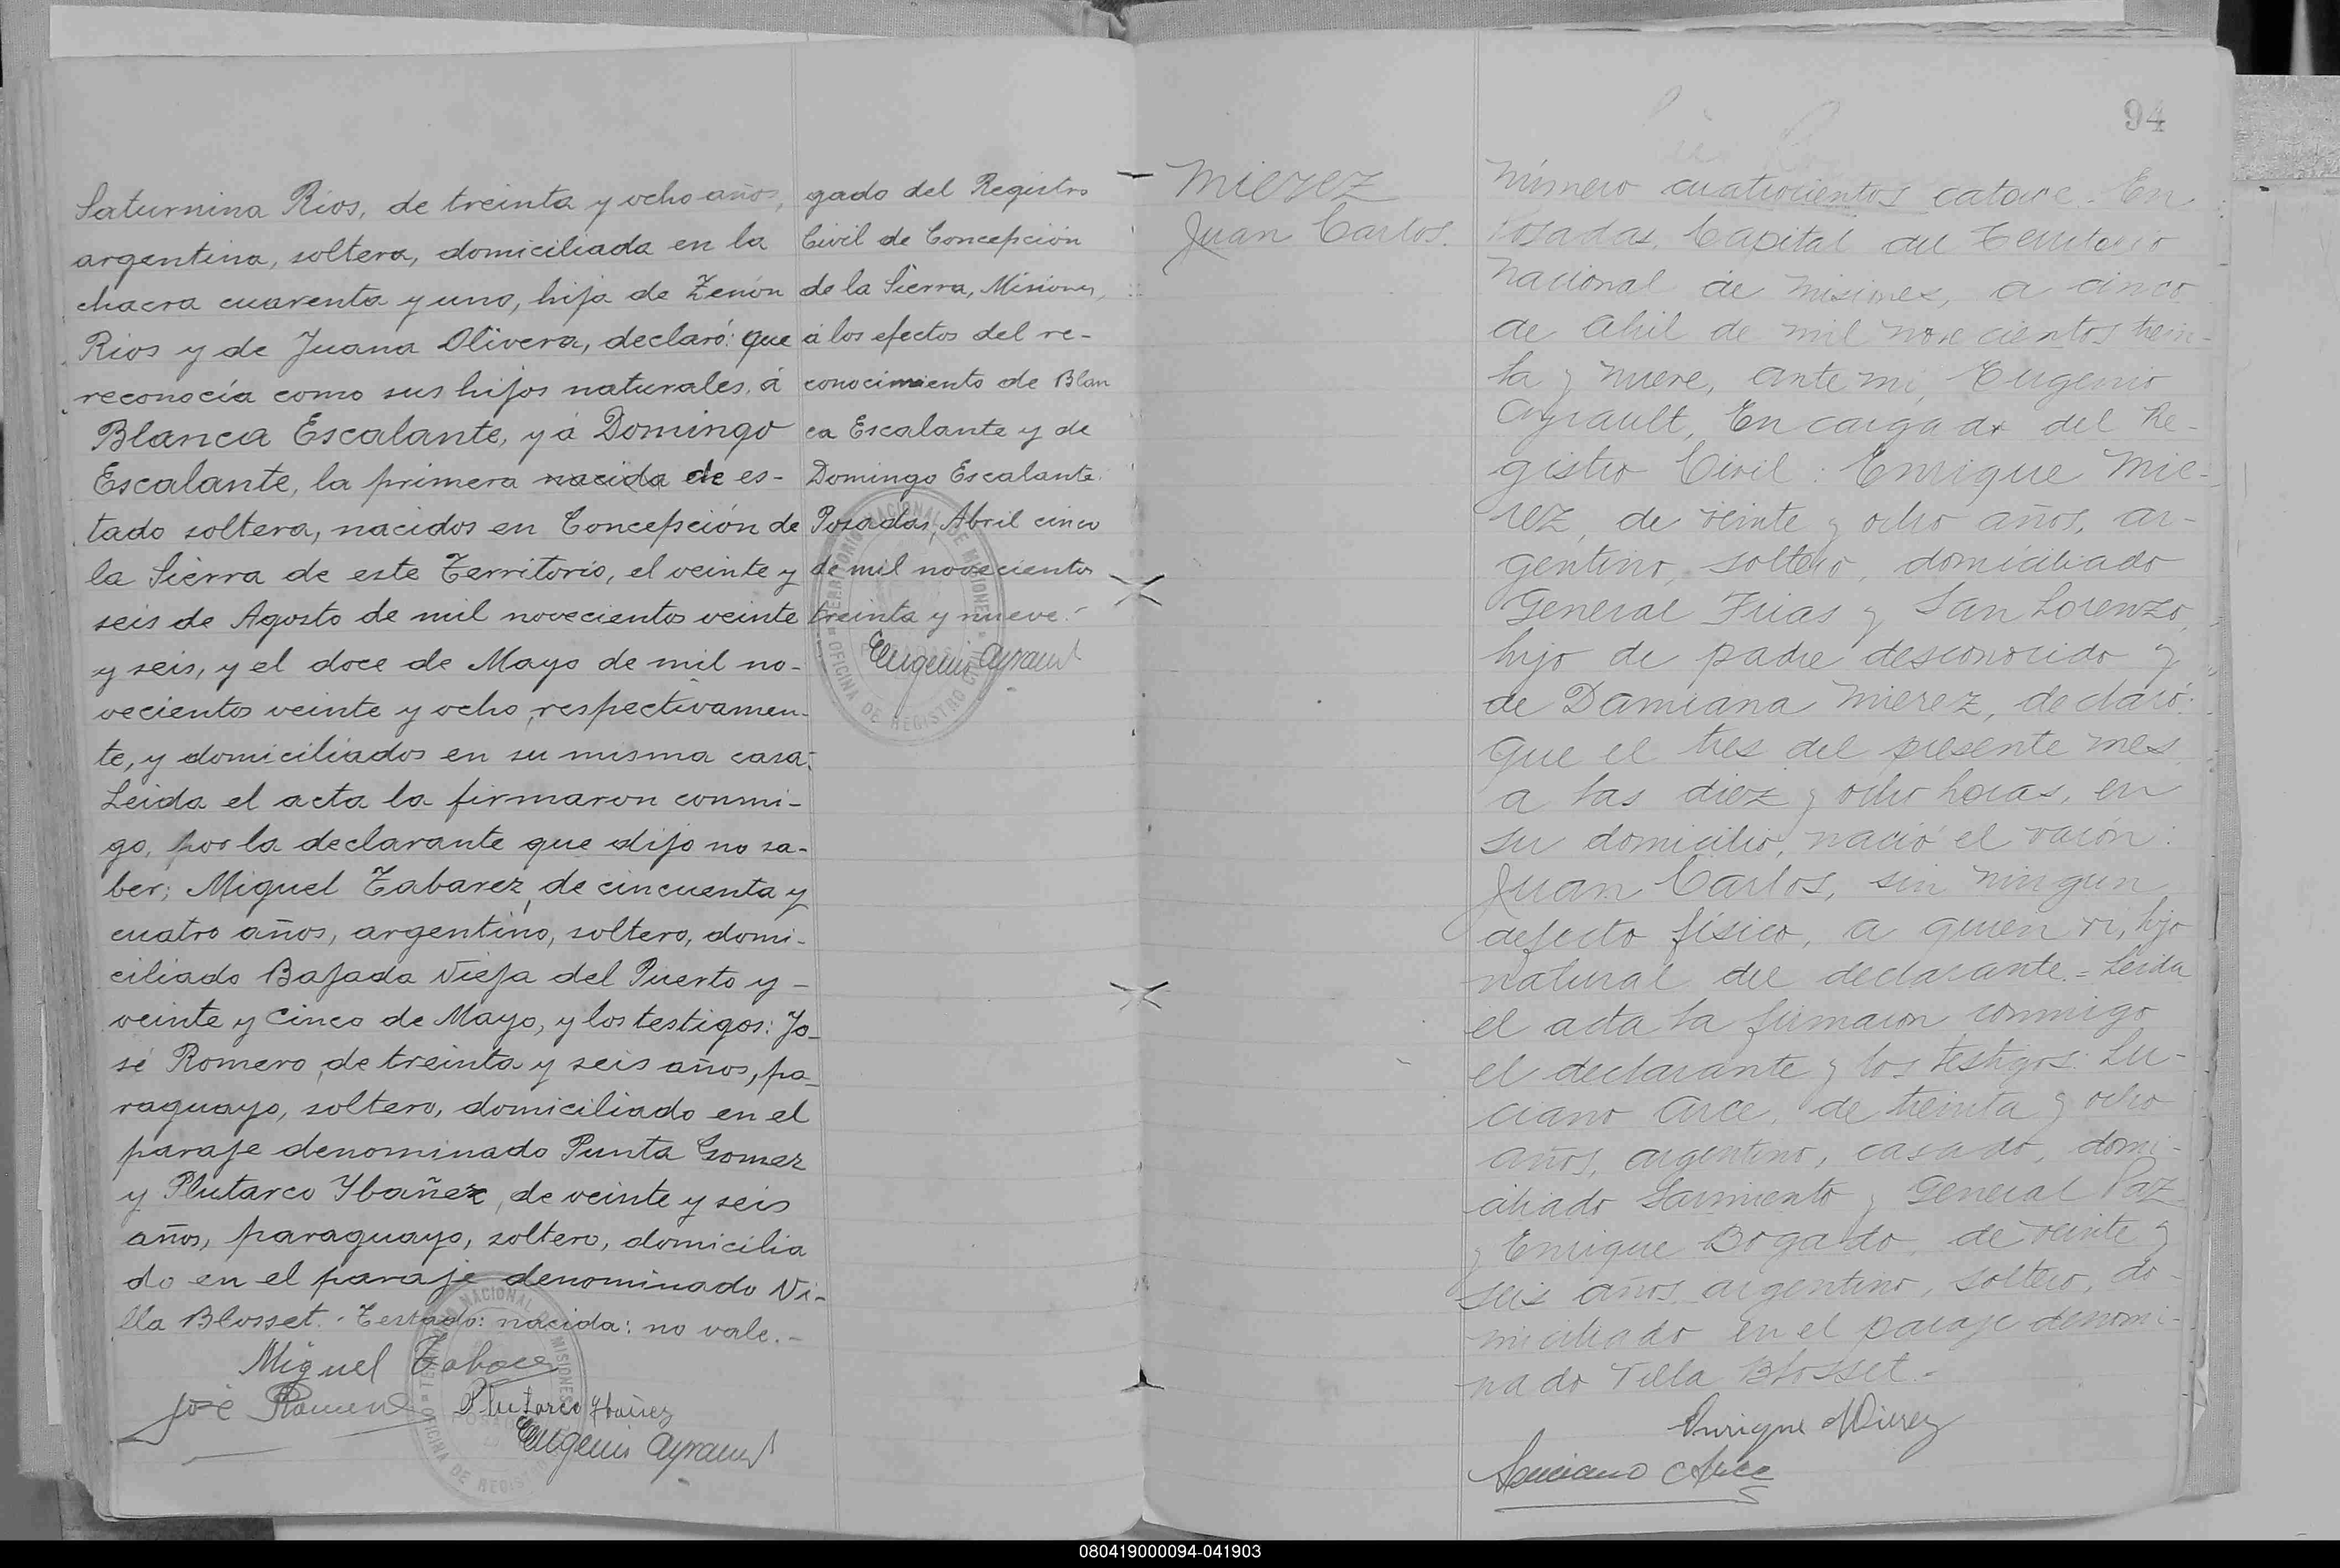 Saturnina Rios, de treinta y ocho años,
argentina, soltera, domiciliada en la
chacra cuarenta y uno, hija de Zenón
Rios y de Juana Olivera, declaró: que
reconocía como sus hijos naturales, á
Blanca Escalante, y á Domingo
Escalante, la primera nacida de es-
tado soltera, nacidos en Concepción de
la Sierra de este Territorio, el veinte y
seis de Agosto de mil novecientos veinte
y seis, y el doce de Mayo de mil no-
vecientos veinte y ocho, respectivamen-
te, y domiciliados en su misma casa.
Leida el acta la firmaron conmi-
go, por la declarante que dijo no sa-
ber; Miguel Tabarez, de cincuenta y
cuatro años, argentino, soltero, domi-
ciliado Bajada Vieja del Puerto y -
veinte y cinco de Mayo, y los testigos: Jo-
sé Romero, de treinta y seis años, pa-
raguayo, soltero, domiciliado en el
paraje denominado Punta Gomez
y Plutarco Ybañez, de veinte y seis
años, paraguayo, soltero, domicilia
do en el paraje denominado Vi-
lla Blosset. - Testado: nacida: no vale. -
Miguel
José Plutarco Ybañez
Eugenio Ayrault
TERRITORIO NACIONAL DE MISIONES
OFICINA DE REGISTRO
gado del Registro
Civil de Concepción
de la Sierra, Misiones,
á los efectos del re-
conocimiento de Blan
ca Escalante y de
Domingo Escalante.
Posadas, Abril cinco
de mil novecientos
treinta y nueve. -
Eugenio Ayrault
TERRITORIO NACIONAL DE MISIONES
OFICINA DE REGISTRO CIVIL
94
Mierez
Juan Carlos.
Número cuatrocientos catorce. En
Posadas, Capital del Territorio
Nacional de Misiones, a cinco
de Abril de mil novecientos trein-
ta y nueve, ante mi, Eugenio
Ayrault, Encargado del Re-
gistro Civil: Enrique Mie-
rez, de veinte y ocho años, ar-
gentino, soltero, domiciliado
General Frias y San Lorenzo,
hijo de padre desconocido y
de Damiana Mierez, declaró:
Que el tres del presente mes
a las diez y ocho horas, en
su domicilio, nació el varón:
Juan Carlos, sin ningun
defecto físico, a quien vi, hijo
natural del declarante. - Leida
el acta la firmaron conmigo
el declarante y los testigos: Lu-
ciano Arce, de treinta y ocho
años, argentino, casado, domi-
ciliado Sarmiento y General Paz
y Enrique Bogado, de veinte y
seis años, argentino, soltero, do-
miciliado en el paraje denomi-
nado Villa Blosset. -
Enrique Mierez
Luciano Arce
080419000094-041903